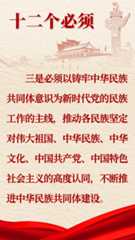 十二个必须
三是必须以铸牢中华民族
共同体意识为新时代党的民族
工作的主线，推动各民族坚定
对伟大祖国、中华民族、中华
文化、中国共产党、中国特色
社会主义的高度认同，不断推
进中华民族共同体建设。